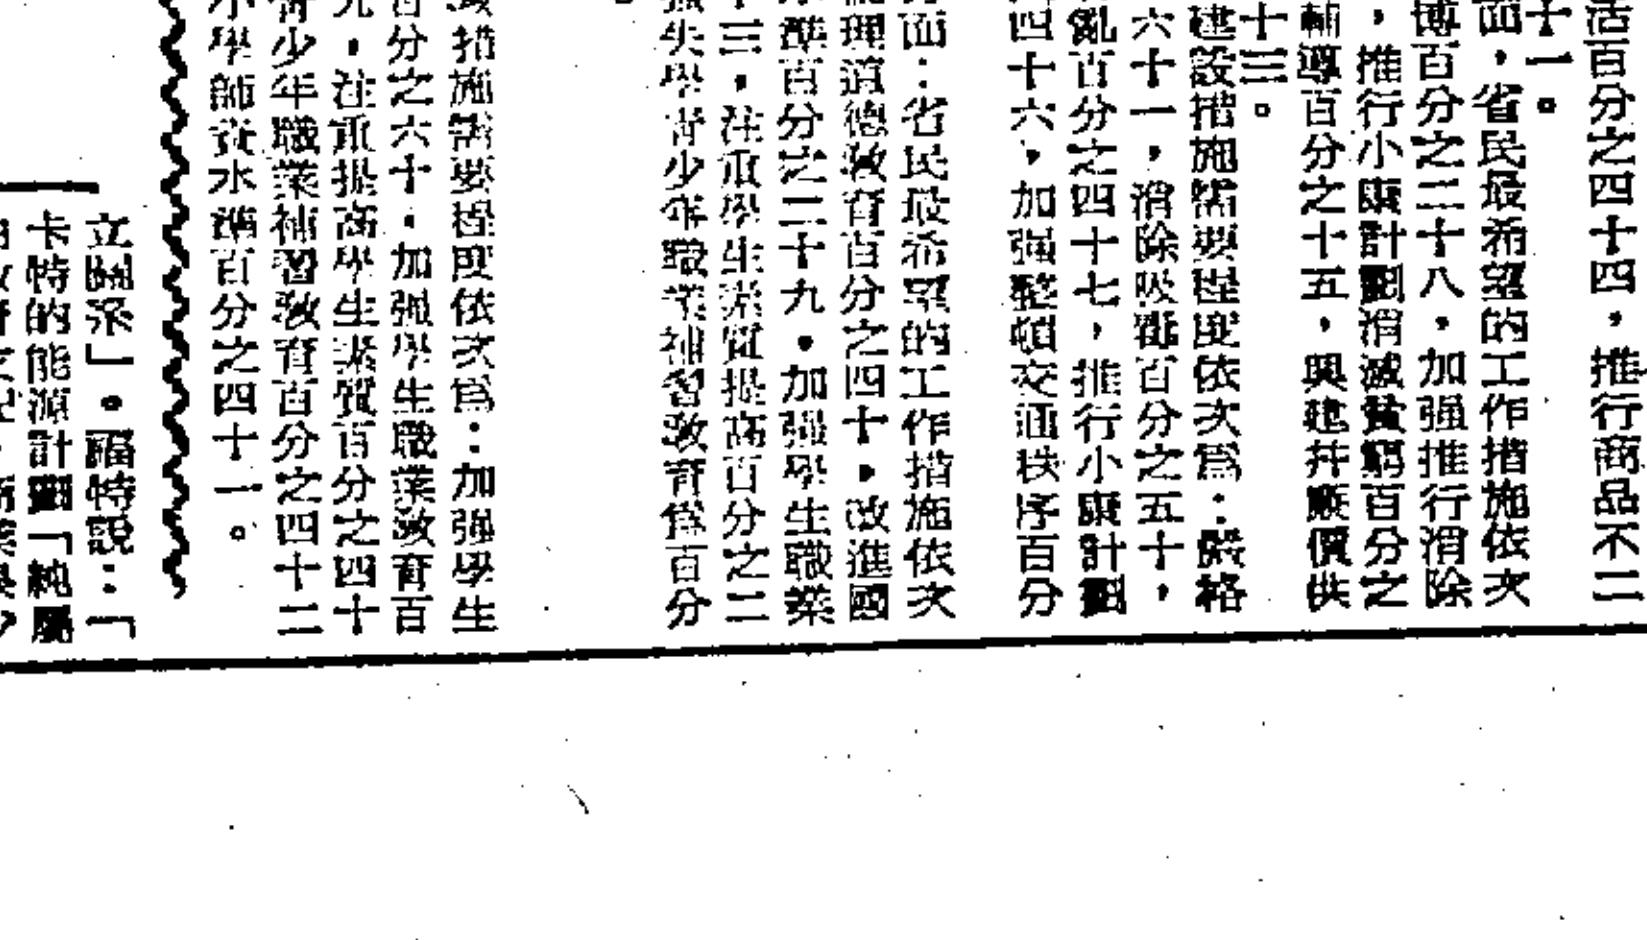 活百分之四十四，推行商品不二
十一。
面，省民最希望的工作措施依次
博百分之二十八，加强推行消除
，推行小康計劃消滅貧窮百分之
輔導百分之十五，興建丼廉價供
十三。
建設措施需要程度依次爲：嚴格
六十一，消除吸毒百分之五十，
亂百分之四十七，推行小康計劃
四十六，加强整頓交通秩序百分
面：省民最希望的工作措施依次
理道德敎育百分之四十，改進國
準百分之二十九，加强學生職業
十三，注重學生素質提高百分之二
失學靑少年職業補習敎育僅百分
措施需要程度依次爲：加强學生
百分之六十，加强學生職業敎育百
九，注重提高學生素質百分之四十
靑少年職業補習敎育百分之四十二
小學師資水準百分之四十一。
立關系」。福特說：「
卡特的能源計劃「純屬